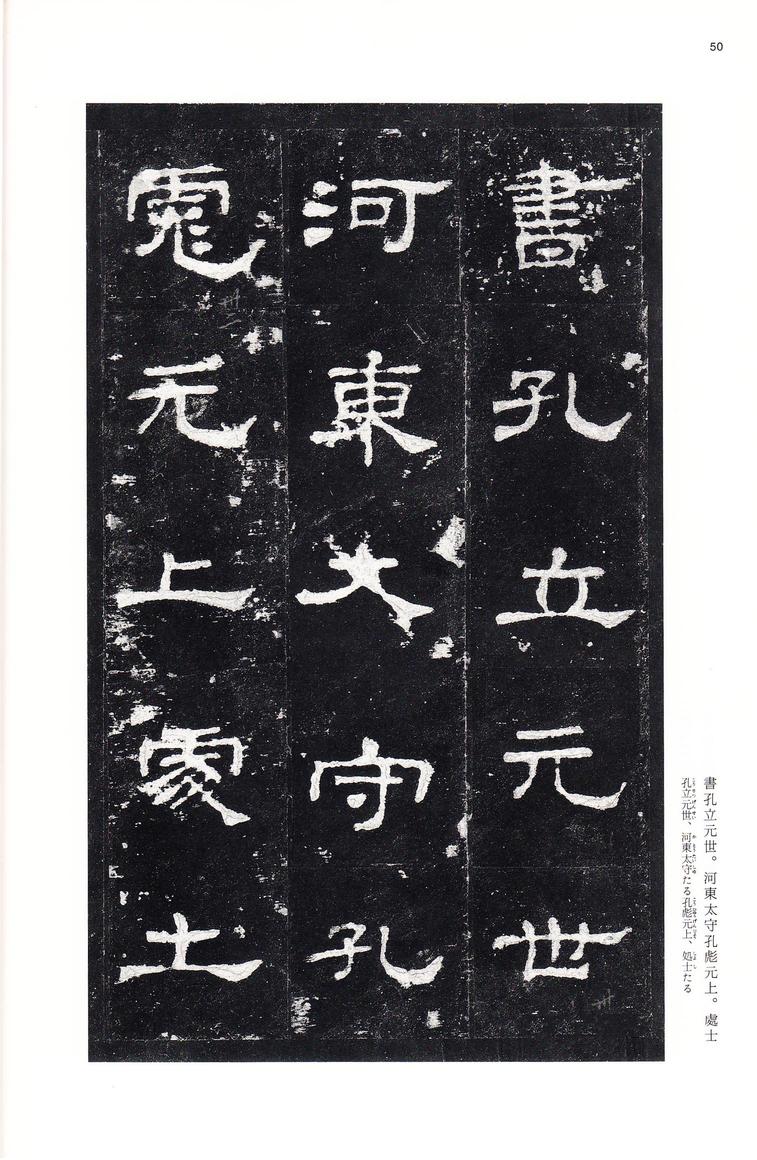 50
書孔立元世
河東大守孔
彪元上處士
書孔立元世。河東太守孔彪元上。處士
孔立元世、河東太守たる孔彪元上、処士たる